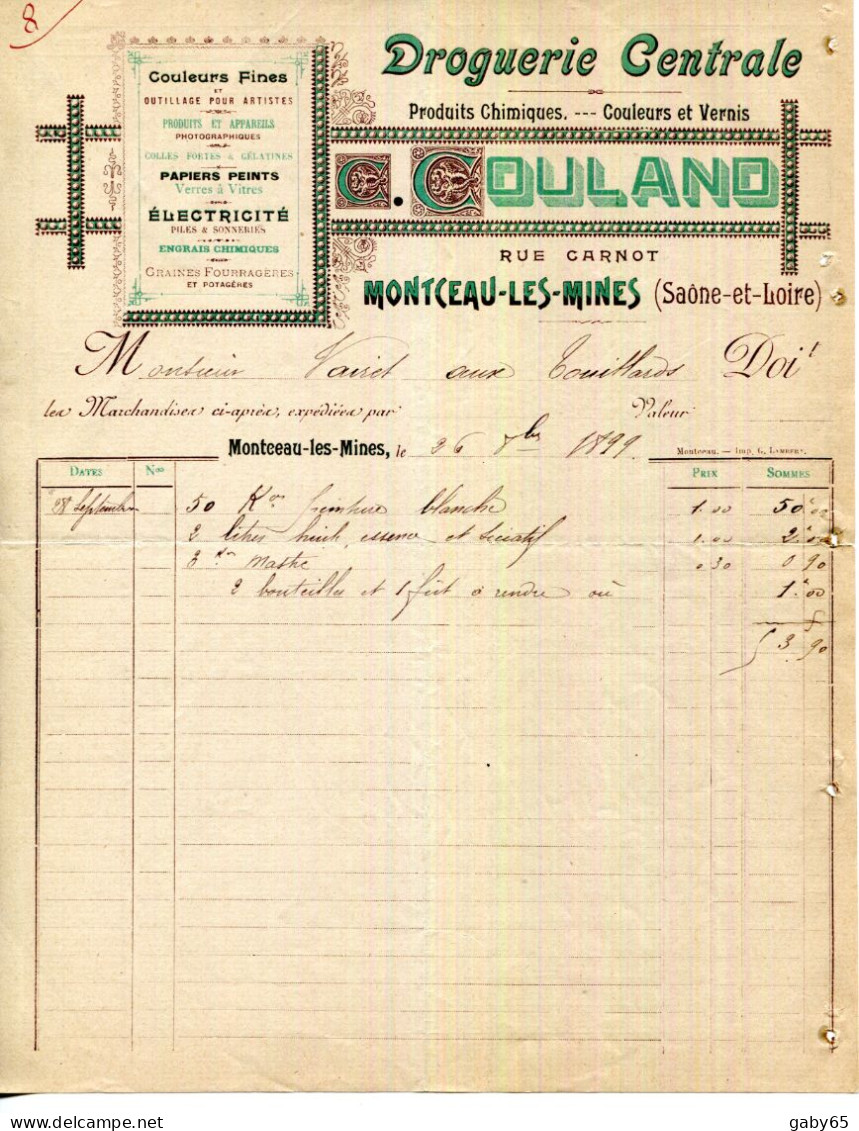 8
Droguerie Centrale
Produits Chimiques. --- Couleurs et Vernis
C. COULAND
RUE CARNOT
MONTCEAU-LES-MINES (Saône-et-Loire)
Couleurs Fines
ET
OUTILLAGE POUR ARTISTES
PRODUITS ET APPAREILS
PHOTOGRAPHIQUES
COLLES FORTES & GÉLATINES
PAPIERS PEINTS
Verres à Vitres
ÉLECTRICITÉ
PILES & SONNERIES
ENGRAIS CHIMIQUES
GRAINES FOURRAGÈRES
ET POTAGÈRES
Monsieur Vairet aux Touillards Doit
les Marchandises ci-après, expédiées par Valeur
Montceau-les-Mines, le 26 8bre 1899
Montceau. — Imp. G. LAMBERT.
DATES Nos PRIX SOMMES
28 Septembre 50 Kos peinture blanche 1.00 50.00
2 litres huile, essence et siccatif 1.00 2.00
3 Kos Mastic 0.30 0.90
2 bouteilles et 1 fût à rendre ou 1.00
53.90
gaby65